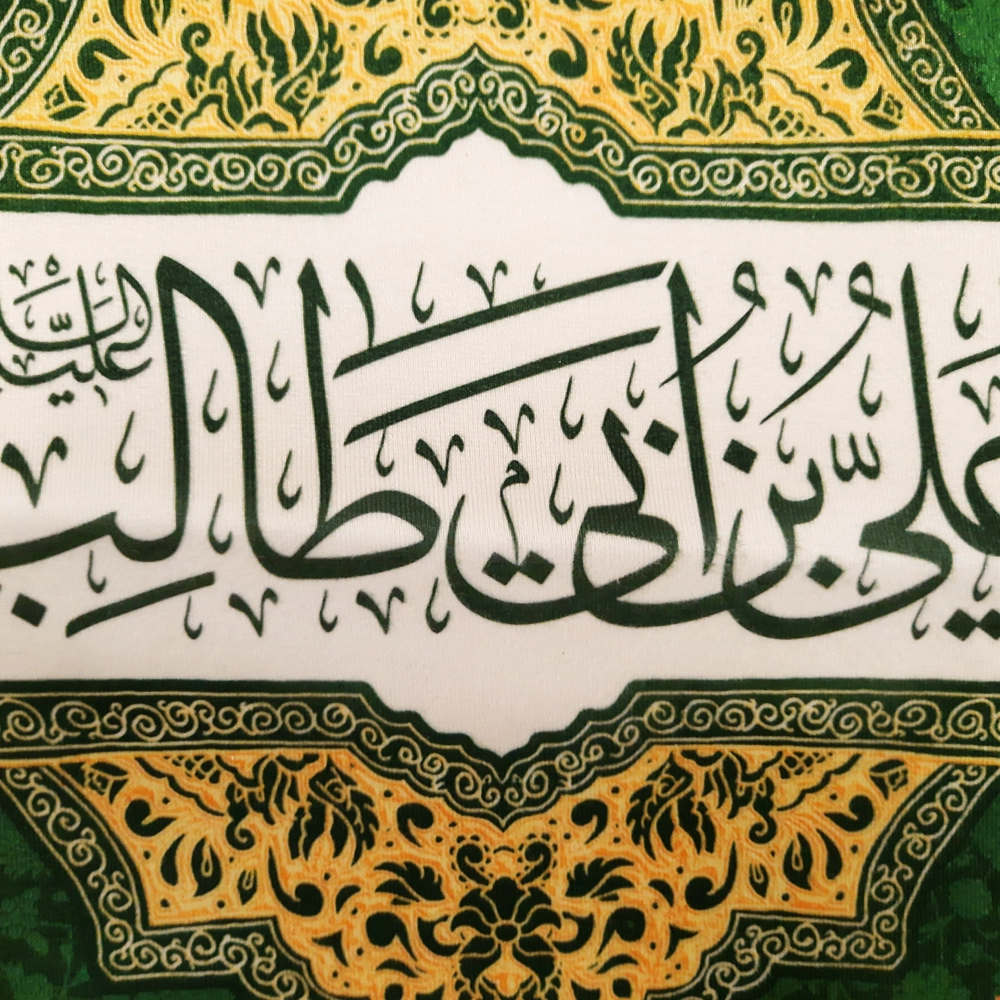 عَلِيُّ بْنُ أَبِي طَالِبٍ عليه السلام